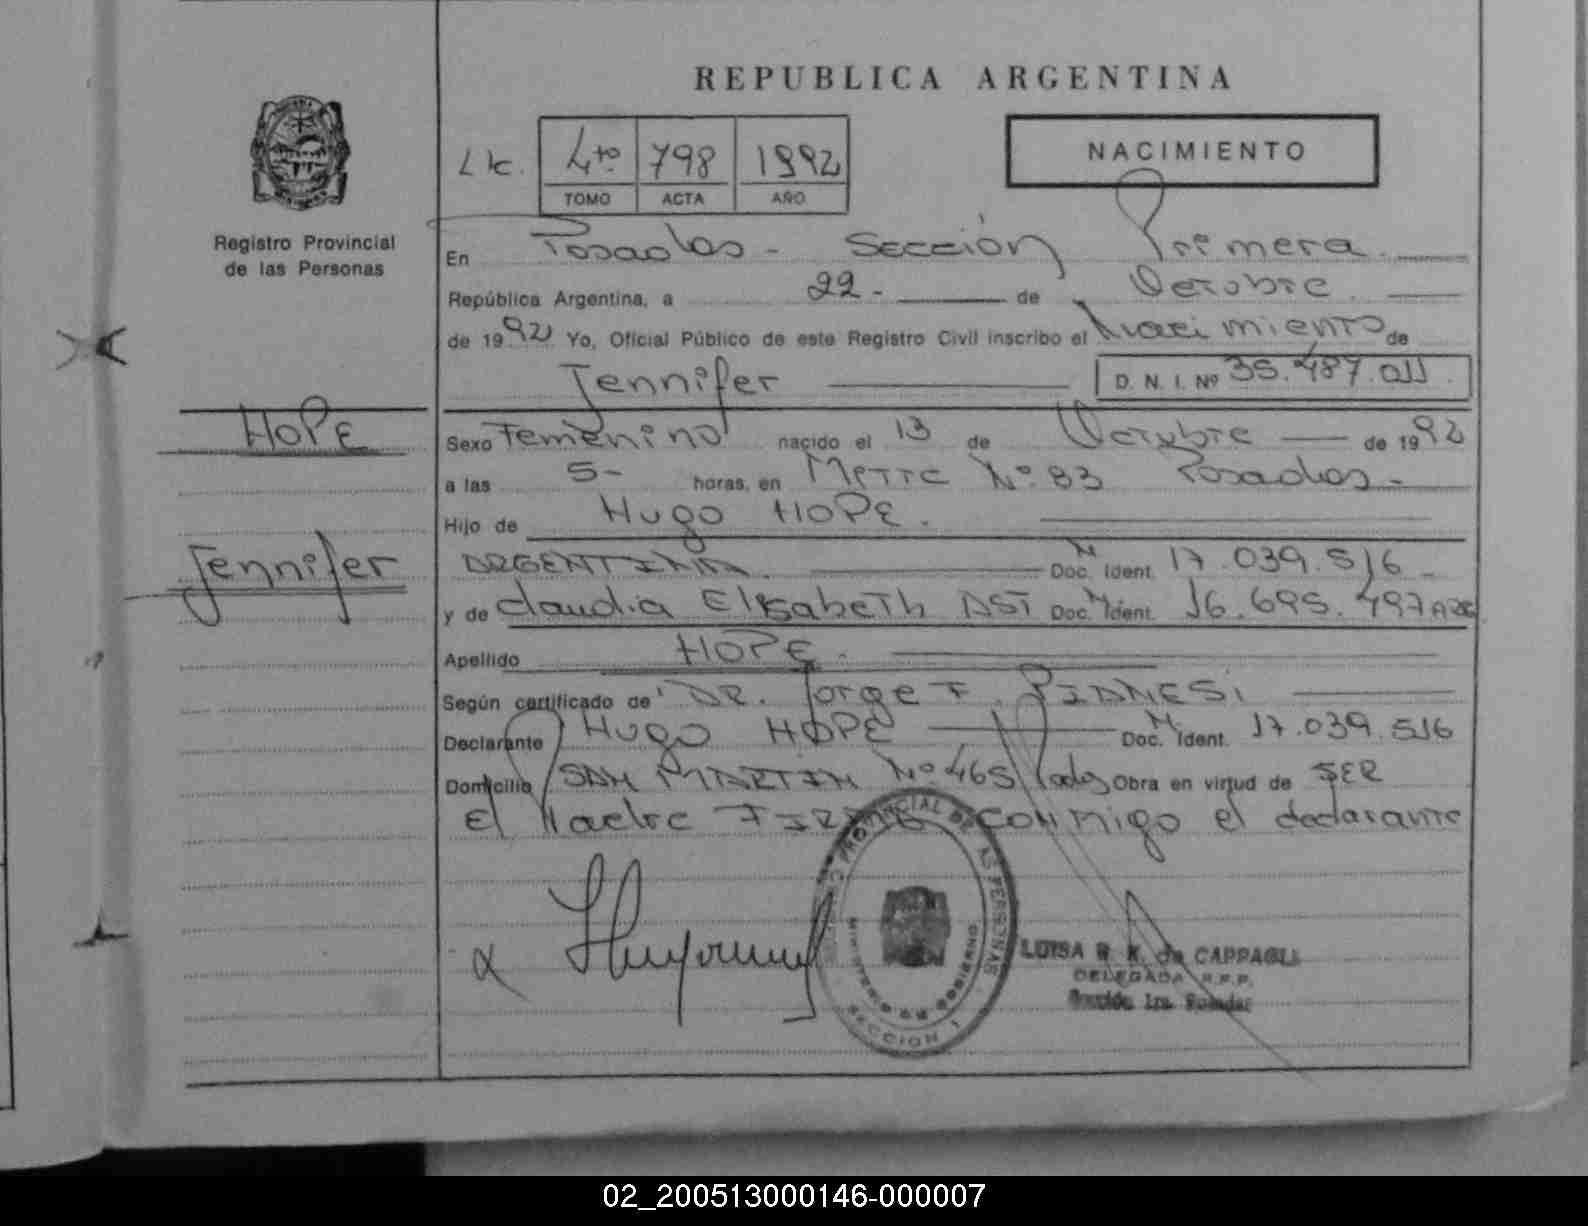 REPUBLICA ARGENTINA
Registro Provincial
de las Personas
Lic. 4to 798 1992
TOMO ACTA AÑO
NACIMIENTO
En Posadas - Sección Primera
República Argentina, a 22 - de Octubre
de 1992 Yo, Oficial Público de este Registro Civil inscribo el Nacimiento de
Jennifer D. N. I. Nº 35.487.011
HOPE
Sexo Femenino nacido el 13 de Octubre de 1992
a las 5- horas, en Mitre Nº 83 Posadas -
Hijo de Hugo HOPE.
Jennifer
ARGENTINA. Doc. Ident. 17.039.516 -
y de Claudia Elisabeth AST Doc. Ident. 16.695.497 ARG
Apellido HOPE.
Según certificado de DR. Jorge F. PIANESI
Declarante Hugo HOPE Doc. Ident. 17.039.516
Domicilio SAN MARTIN Nº 465 Pdas Obra en virtud de SER
El Padre FIRMA conmigo el declarante
REGISTRO PROVINCIAL DE LAS PERSONAS
MINISTERIO DE GOBIERNO
SECCION 1
LUISA R. K. de CAPPAGLI
DELEGADA R.P.P.
Sección 1ra. Posadas
02_200513000146-000007